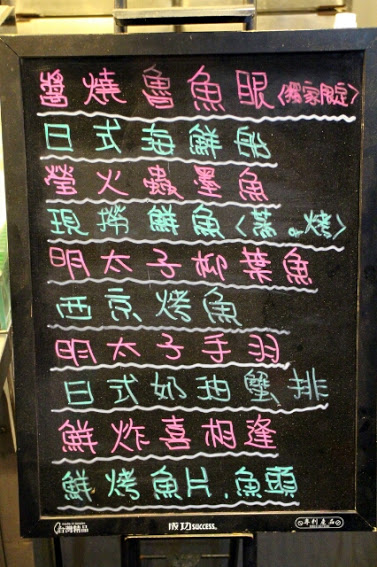 醬燒魯魚眼〈獨家限定〉
日式海鮮船
螢火蟲墨魚
現撈鮮魚〈蒸or烤〉
明太子柳葉魚
西京烤魚
明太子手羽
日式奶油蟹排
鮮炸喜相逢
鮮烤魚片.魚頭
台灣精品
成功 SUCCESS.
專利產品